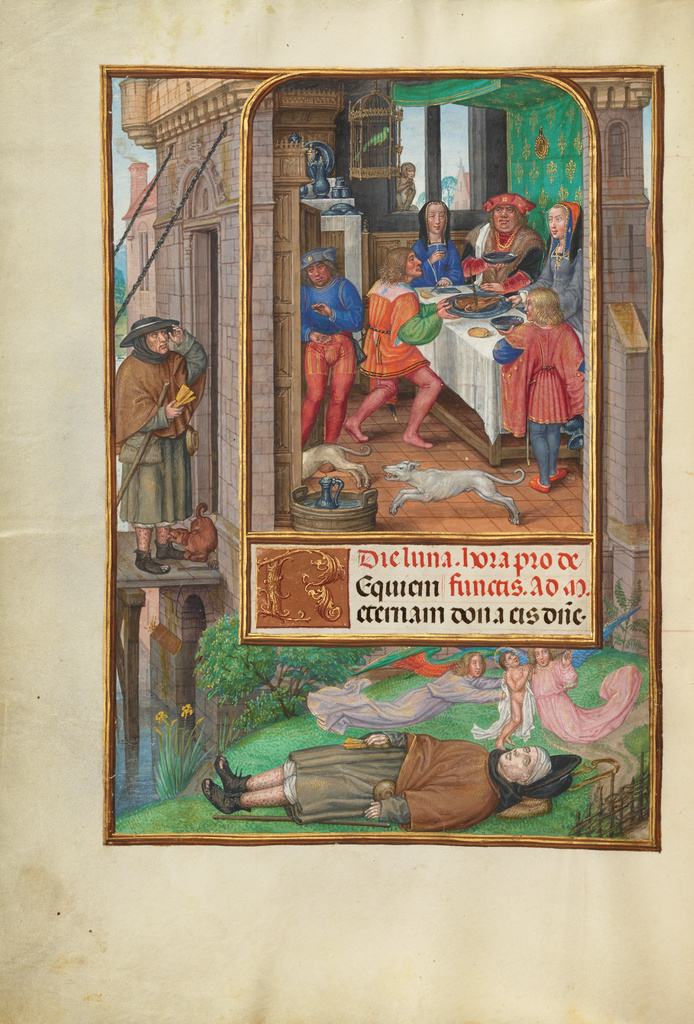 Die lune. hora pro de
Requiem functis. Ad m̃.
eternam dona eis dñe.